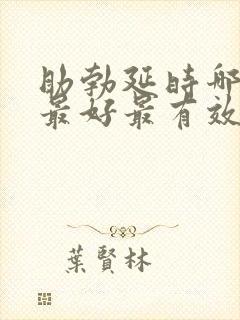 助勃延时哪
最好最有效
葉賢林